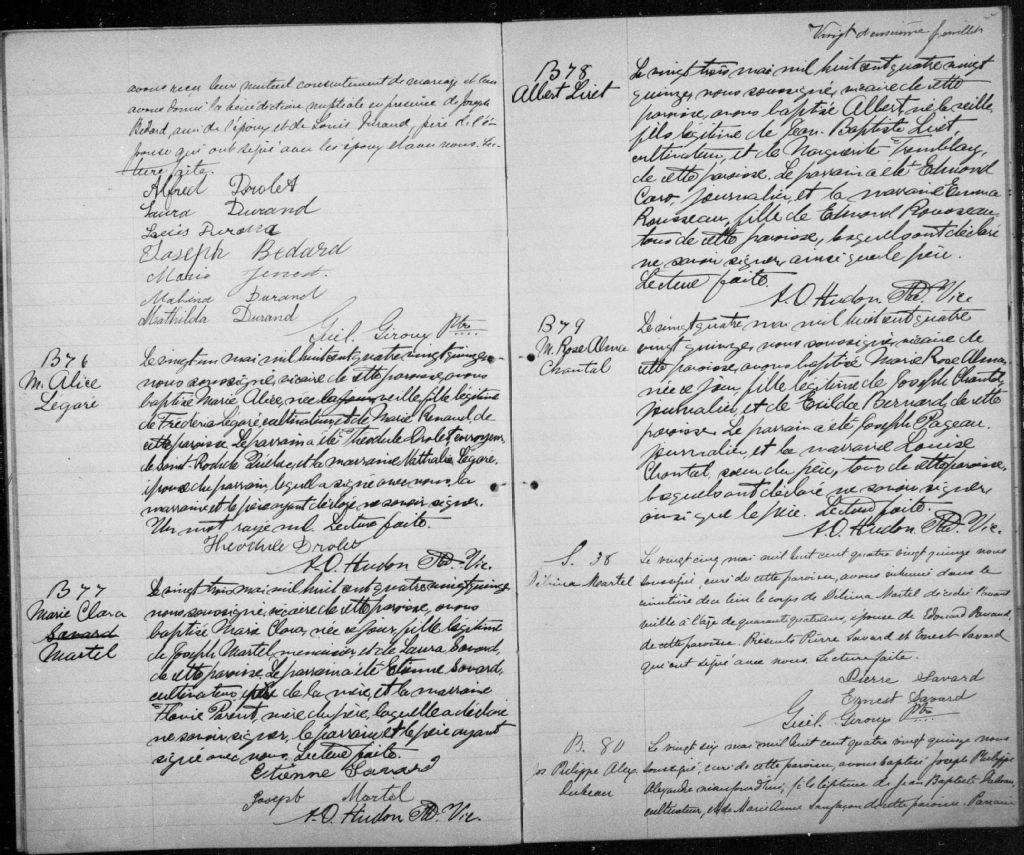 avons reçu leur mutuel consentement de mariage et leur
avons donné la bénédiction nuptiale en présence de Joseph
Bédard, ami de l'époux, et de Louis Durand, père de l'é-
pouse qui ont signé avec les époux et avec nous. Lec-
ture faite.
Alfred Drolet
Laura Durand
Louis Durand
Joseph Bedard
Maria
Malvina Durand
Mathilda Durand
Guil. Giroux Ptre
B 76
M. Alice
Légaré
Le vingt un mai mil huit cent quatre vingt quinze,
nous soussigné, vicaire de cette paroisse, avons
baptisé Marie Alice, née la veille, fille légitime
de Frédéric Légaré, cultivateur, et de Marie Renaud, de
cette paroisse. Le parrain a été Théodule Drolet, corroyeur,
de Saint-Roch de Québec, et la marraine Nathalie Légaré,
épouse du parrain, lequel a signé avec nous, la
marraine et le père ayant déclaré ne savoir signer.
Un mot rayé nul. Lecture faite.
Théodule Drolet
A. O. Hudon Ptre. Vic.
B 77
Marie Clara
Savard
Martel
Le vingt trois mai mil huit cent quatre vingt quinze
nous soussigné, vicaire de cette paroisse, avons
baptisé Marie Clara, née ce jour, fille légitime
de Joseph Martel, menuisier, et de Laura Savard,
de cette paroisse. Le parrain a été Etienne Savard,
cultivateur, père de la mère, et la marraine
Flavie Parent, mère du père, laquelle a déclaré
ne savoir signer, le parrain et le père ayant
signé avec nous. Lecture faite.
Etienne Savard
Joseph Martel
A. O. Hudon Ptre. Vic.
Vingt deuxième feuillet
B 78
Albert Liret
Le vingt trois mai mil huit cent quatre vingt
quinze, nous soussigné, vicaire de cette
paroisse, avons baptisé Albert, né la veille,
fils légitime de Jean-Baptiste Liret,
cultivateur, et de Marguerite Tremblay,
de cette paroisse. Le parrain a été Edmond
Caro, journalier, et la marraine Emma
Rousseau, fille de Edmond Rousseau,
tous de cette paroisse, lesquels ont déclaré
ne savoir signer ainsi que le père.
Lecture faite.
A. O. Hudon Ptre. Vic
B 79
M. Rose Alma
Chantal
Le vingt quatre mai mil huit cent quatre
vingt quinze, nous soussigné, vicaire de
cette paroisse, avons baptisé Marie Rose Alma,
née ce jour, fille légitime de Joseph Chantal,
journalier, et de Exilda Bernard, de cette
paroisse. Le parrain a été Joseph Pageau
journalier, et la marraine Louise
Chantal, soeur du père, tous de cette paroisse,
lesquels ont déclaré ne savoir signer,
ainsi que le père. Lecture faite.
A. O. Hudon Ptre. Vic.
S. 38
Délvina Martel
Le vingt cinq mai mil huit cent quatre vingt quinze nous
soussigné, curé de cette paroisse, avons inhumé dans le
cimetière de ce lieu le corps de Délvina Martel décédée l'avant
veille à l'âge de quarante quatre ans, épouse de Edouard
de cette paroisse. Présents Pierre Savard et Ernest Savard
qui ont signé avec nous. Lecture faite.
Pierre Savard
Ernest Savard
Guil. Giroux Ptre
B. 80
Jos Philippe Alex.
Dubeau
Le vingt six mai mil huit cent quatre vingt quinze nous
soussigné, curé de cette paroisse, avons baptisé Joseph Philippe
Alexandre né aujourd'hui, fils légitime de Jean Baptiste Dubeau,
cultivateur, et de Marie Anne Sanfaçon de cette paroisse. Parrain